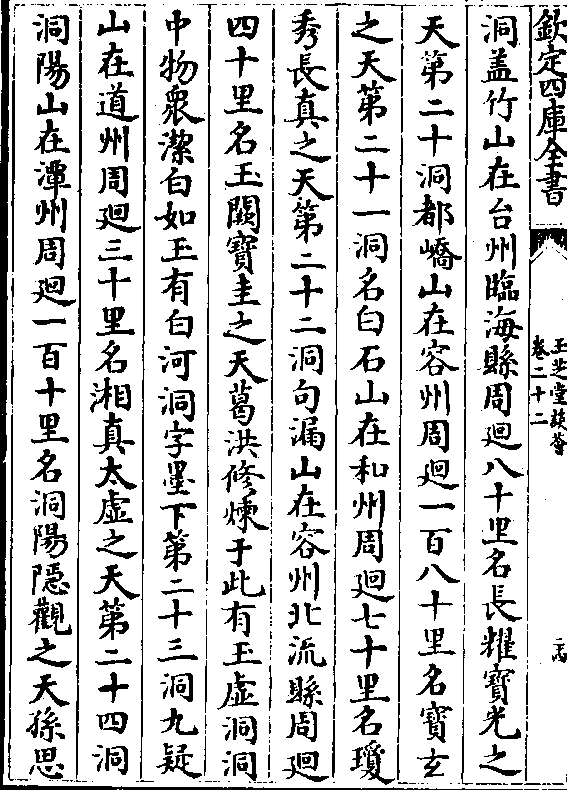 欽定四庫全書
玉芝堂談薈
卷二十二
洞盖竹山在台州臨海縣周廻八十里名長耀寶光之
天第二十洞都嶠山在容州周廻一百八十里名寶玄
之天第二十一洞名白石山在和州周廻七十里名瓊
秀長真之天第二十二洞句漏山在容州北流縣周廻
四十里名玉闕寶圭之天葛洪修煉于此有玉虛洞洞
中物衆潔白如玉有白河洞字墨下第二十三洞九疑
山在道州周廻三十里名湘真太虛之天第二十四洞
洞陽山在潭州周廻一百十里名洞陽隱觀之天孫思